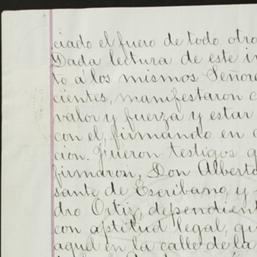 ciado el fuero de todo otro
Dada lectura de este in
to a los mismos Señore
cientes, manifestaron c
valor y fuerza y estar
con el, firmando en c
cion. Fueron testigos q
firmaron, Don Alberto
sante de Escribano y
dro Ortiz, dependient
con aptitud legal, qu
aquel en la calle de la